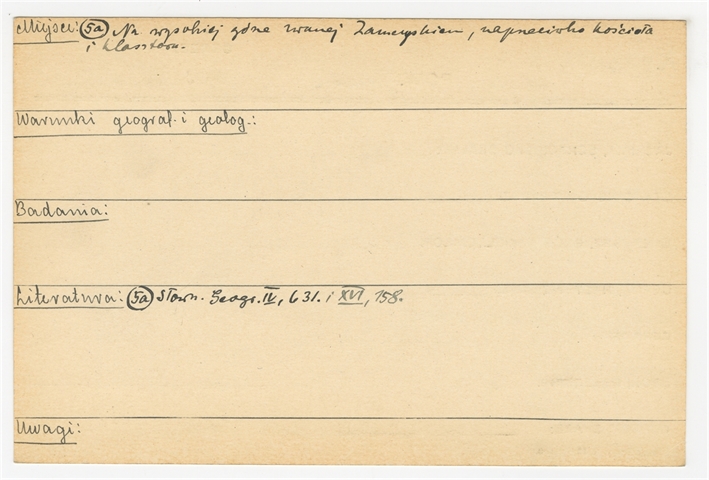 Miejsce: 5a Na wysokiej górze zwanej Zameyskiem, naprzeciwko kościoła
i klasztoru.
Warunki geograf. i geolog.:
Badania:
Literatura: 5a Słown. Geogr. IV, 631. i XVI, 158.
Uwagi: